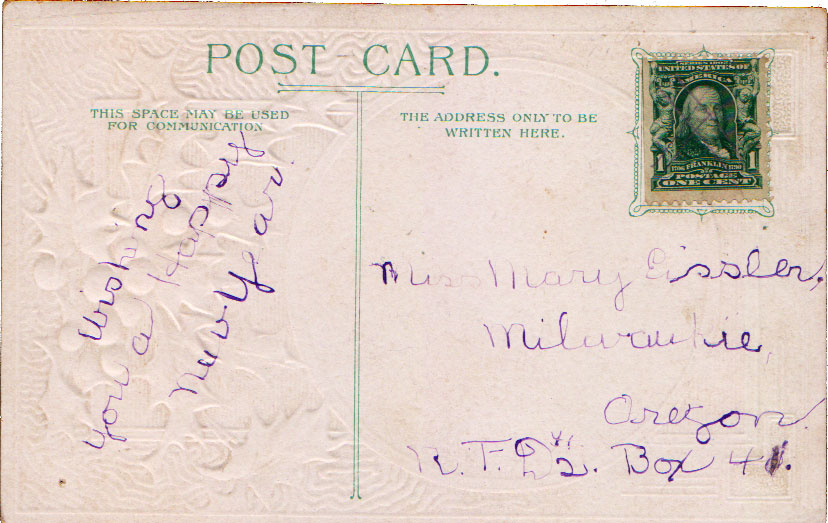 POST CARD.
THIS SPACE MAY BE USED
FOR COMMUNICATION
THE ADDRESS ONLY TO BE
WRITTEN HERE.
SERIES 1902
UNITED STATES OF
AMERICA
1 1706 FRANKLIN 1790 1
POSTAGE
ONE CENT
Wishing
you a Happy
New Year.
Miss Mary Eissler,
Milwaukie,
Oregon.
R.F.D. 2. Box 41.